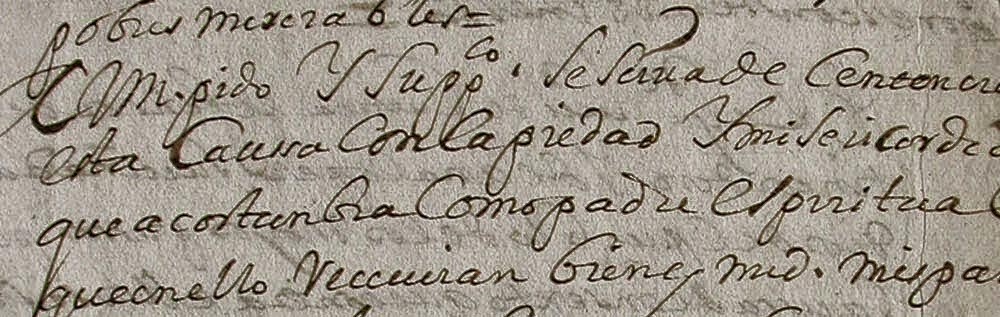 pobres miserables =
VM. pido Y Suppco. Se Sirua de Centencia
esta Causa Con la piedad Y misericordia
que acostunbra Como padre espiritual
que en ello Receuiran bienes md. mis pa